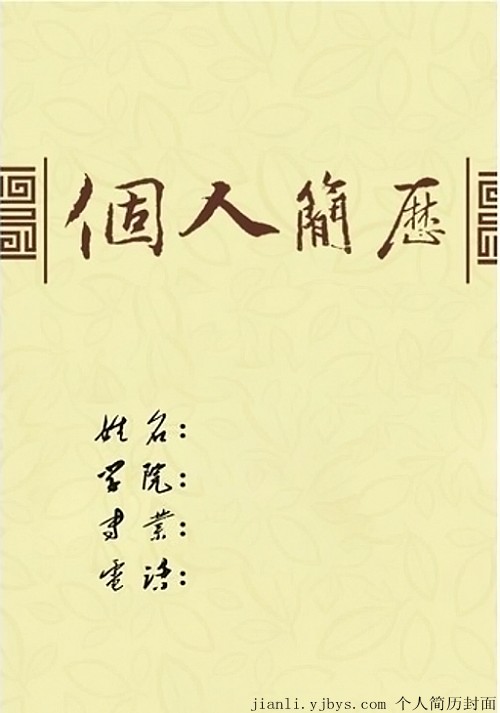 個人簡歷
姓名：
学院：
专業：
電话：
jianli.yjbys.com 个人简历封面